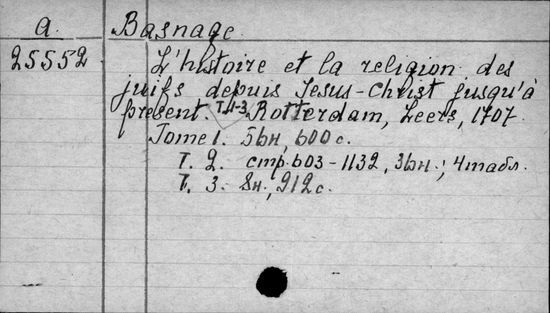 a. Basnage
25552 L'histoire et la religion des
juifs depuis Jesus-Christ jusqu'à
présent. T. 1-3 Rotterdam, Leers, 1707.
Tome 1. 5бн, 600 с.
T. 2. стр. 603-1132, 3бн.; 4 табл.
T. 3. 8н, 912 с.